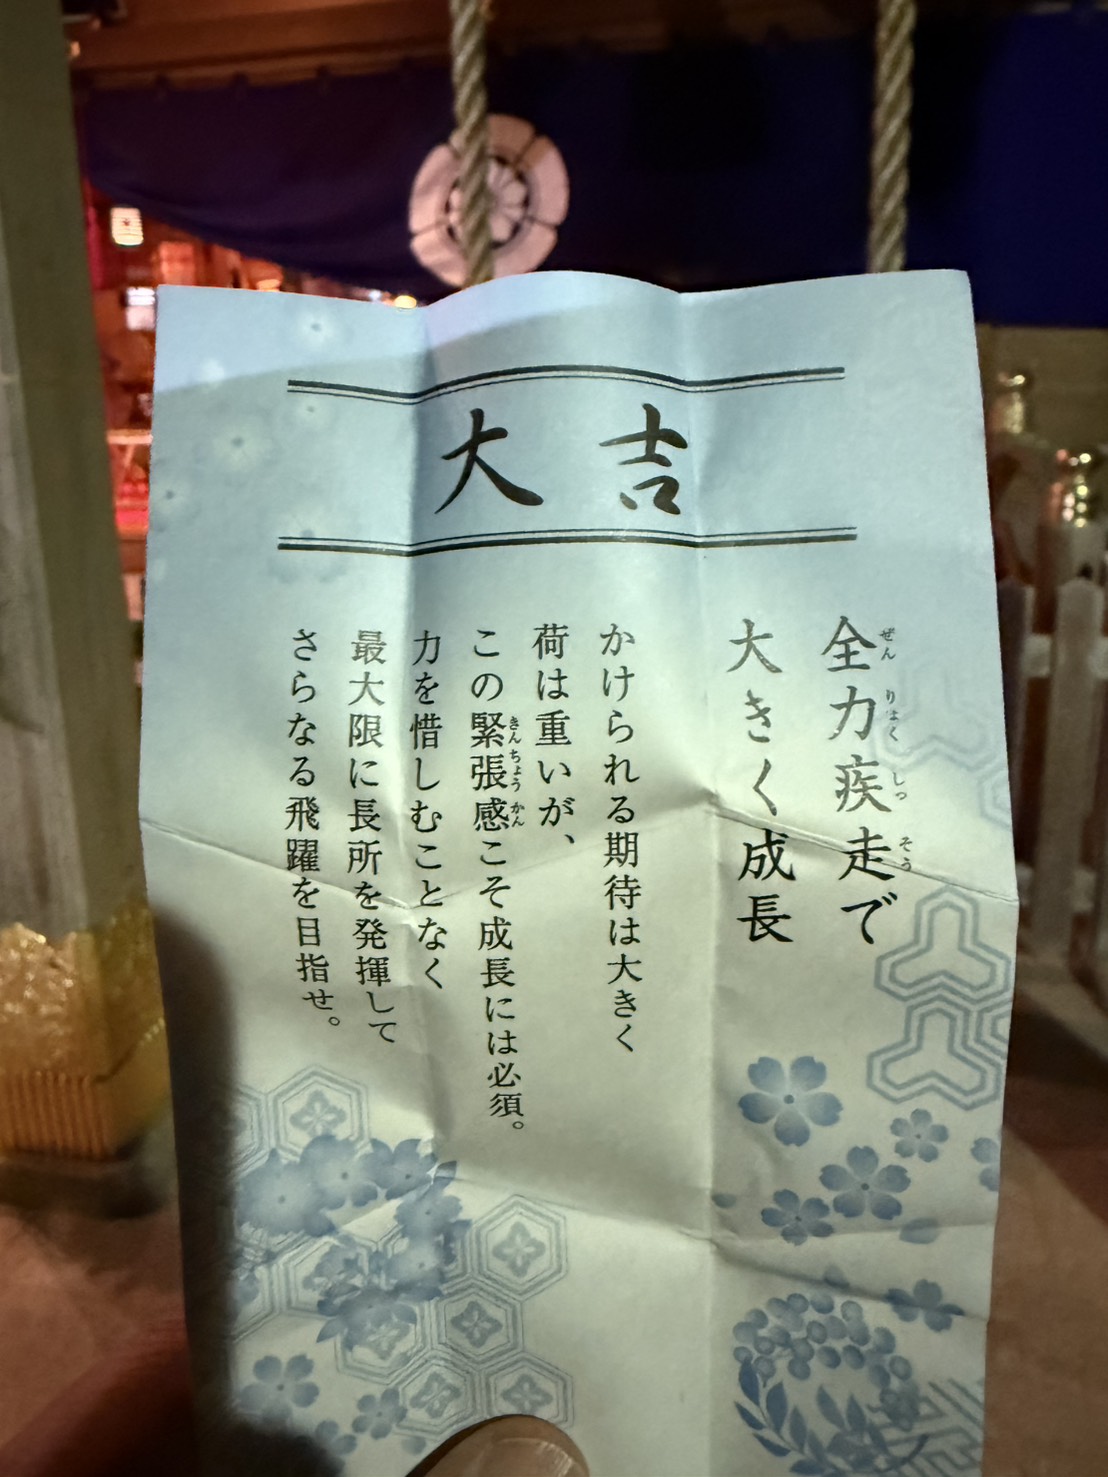 大吉
全力疾走で
ぜんりょくしっそう
大きく成長
かけられる期待は大きく
荷は重いが、
この緊張感こそ成長には必須。
きんちょうかん
力を惜しむことなく
最大限に長所を発揮して
さらなる飛躍を目指せ。